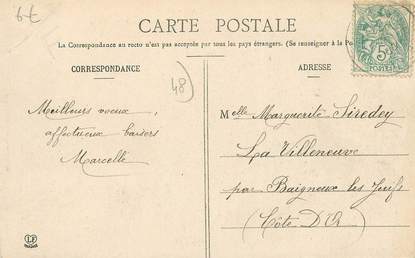 6€
CARTE POSTALE
La Correspondance au recto n'est pas acceptée par tous les pays étrangers. (Se renseigner à la Po
CORRESPONDANCE
ADRESSE
48
5c
POSTES
Meilleurs voeux,
affectueux baisers
Marcelle
Melle Marguerite Siredey
La Villeneuve
par Baigneux les Juifs
(Côte D'Or)